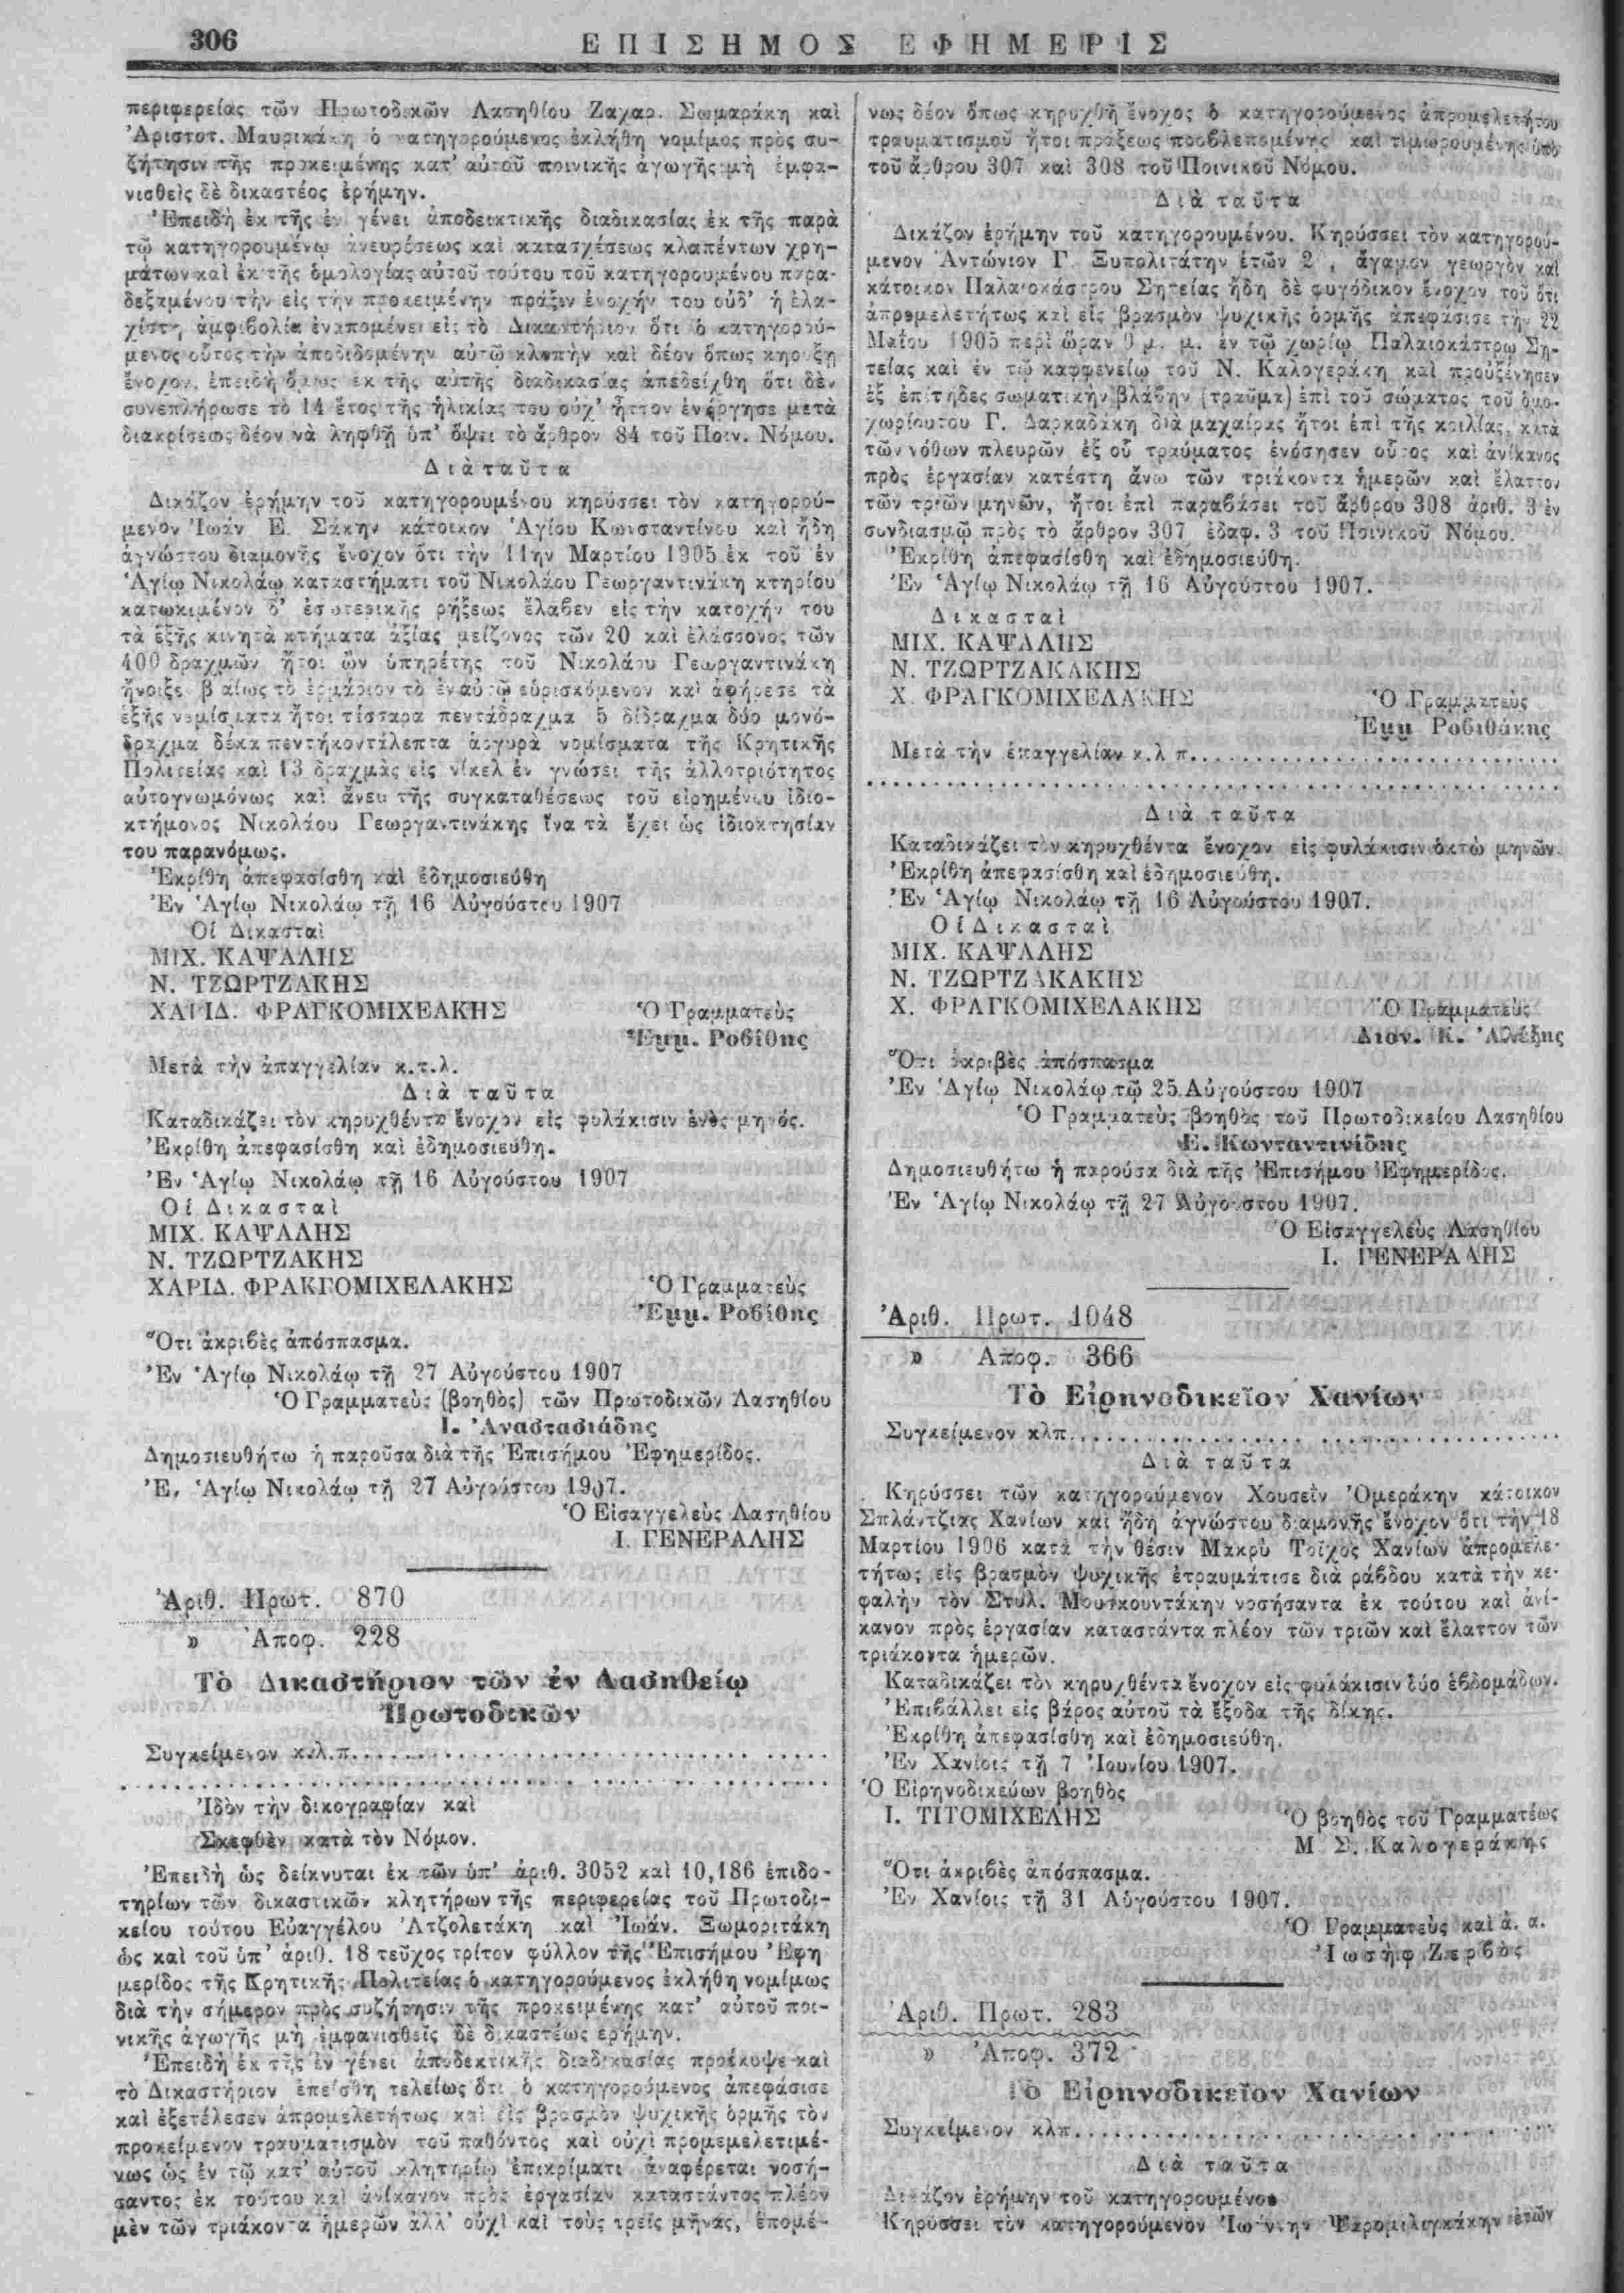 306
ΕΠΙΣΗΜΟΣ ΕΦΗΜΕΡΙΣ
περιφερείας τῶν Πρωτοδικῶν Λασηθίου Ζαχαρ. Σωμαράκη καὶ
Ἀριστοτ. Μαυρικάκη ὁ κατηγορούμενος ἐκλήθη νομίμος πρὸς συ-
ζήτησιν τῆς προκειμένης κατ' αὐτοῦ ποινικῆς ἀγωγῆς μὴ ἐμφα-
νισθεὶς δὲ δικαστέος ἐρήμην.
Ἐπειδὴ ἐκ τῆς ἐν γένει ἀποδεικτικῆς διαδικασίας ἐκ τῆς παρὰ
τῷ κατηγορουμένῳ ἀνευρέσεως καὶ κατασχέσεως κλαπέντων χρη-
μάτων καὶ ἐκ τῆς ὁμολογίας αὐτοῦ τούτου τοῦ κατηγορουμένου παρα-
δεξαμένου τὴν εἰς τὴν προκειμένην πρᾶξιν ἐνοχήν του οὐδ' ἡ ἐλα-
χίστη ἀμφιβολία ἐναπομένει εἰς τὸ Δικαστήριον ὅτι ὁ κατηγορού-
μενος οὗτος τὴν ἀποδιδομένην αὐτῷ κλοπὴν καὶ δέον ὅπως κηρύξῃ
ἔνοχον, ἐπειδὴ ὅμως ἐκ τῆς αὐτῆς διαδικασίας ἀπεδείχθη ὅτι δὲν
συνεπλήρωσε τὸ 14 ἔτος τῆς ἡλικίας του οὐχ' ἧττον ἐνήργησε μετὰ
διακρίσεως δέον νὰ ληφθῇ ὑπ' ὄψει τὸ ἄρθρον 84 τοῦ Ποιν. Νόμου.
Διὰ ταῦτα
Δικάζον ἐρήμην τοῦ κατηγορουμένου κηρύσσει τὸν κατηγορού-
μενον Ἰωάν Ε. Σάκην κάτοικον Ἁγίου Κωνσταντίνου καὶ ἤδη
ἀγνώστου διαμονῆς ἔνοχον ὅτι τὴν 11ην Μαρτίου 1905 ἐκ τοῦ ἐν
Ἁγίῳ Νικολάῳ καταστήματι τοῦ Νικολάου Γεωργαντινάκη κτηρίου
κατωκιμένου δ' ἐσωτερικῆς ρήξεως ἔλαβεν εἰς τὴν κατοχήν του
τὰ ἑξῆς κινητὰ κτήματα ἀξίας μείζονος τῶν 20 καὶ ἐλάσσονος τῶν
400 δραχμῶν ἤτοι ὢν ὑπηρέτης τοῦ Νικολάου Γεωργαντινάκη
ἤνοιξε βιαίως τὸ ἑρμάριον τὸ ἐν αὐτῷ εὑρισκόμενον καὶ ἀφήρεσε τὰ
ἑξῆς νομίσματα ἤτοι τέσσαρα πεντάδραχμα 5 δίδραχμα δύο μονό-
δραχμα δέκα πεντήκοντάλεπτα ἀργυρὰ νομίσματα τῆς Κρητικῆς
Πολιτείας καὶ 13 δραχμὰς εἰς νίκελ ἐν γνώσει τῆς ἀλλοτριότητος
αὐτογνωμόνως καὶ ἄνευ τῆς συγκαταθέσεως τοῦ εἰρημένου ἰδιο-
κτήμονος Νικολάου Γεωργαντινάκης ἵνα τὰ ἔχει ὡς ἰδιοκτησίαν
του παρανόμως.
Ἐκρίθη ἀπεφασίσθη καὶ ἐδημοσιεύθη
Ἐν Ἁγίῳ Νικολάῳ τῇ 16 Αὐγούστου 1907
Οἱ Δικασταὶ
ΜΙΧ. ΚΑΨΑΛΗΣ
Ν. ΤΖΩΡΤΖΑΚΗΣ
ΧΑΡΙΔ. ΦΡΑΓΚΟΜΙΧΕΑΚΗΣ Ὁ Γραμματεὺς
Ἐμμ. Ροβίθης
Μετὰ τὴν ἀπαγγελίαν κ.τ.λ.
Διὰ ταῦτα
Καταδικάζει τὸν κηρυχθέντα ἔνοχον εἰς φυλάκισιν ἑνὸς μηνός.
Ἐκρίθη ἀπεφασίσθη καὶ ἐδημοσιεύθη.
Ἐν Ἁγίῳ Νικολάῳ τῇ 16 Αὐγούστου 1907
Οἱ Δικασταὶ
ΜΙΧ. ΚΑΨΑΛΗΣ
Ν. ΤΖΩΡΤΖΑΚΗΣ
ΧΑΡΙΔ. ΦΡΑΚΓΟΜΙΧΕΛΑΚΗΣ Ὁ Γραμματεὺς
Ἐμμ. Ροβίθης
Ὅτι ἀκριβὲς ἀπόσπασμα.
Ἐν Ἁγίῳ Νικολάῳ τῇ 27 Αὐγούστου 1907
Ὁ Γραμματεὺς (βοηθὸς) τῶν Πρωτοδικῶν Λασηθίου
Ι. Ἀναστασιάδης
Δημοσιευθήτω ἡ παροῦσα διὰ τῆς Ἐπισήμου Ἐφημερίδος.
Ἐ. Ἁγίῳ Νικολάῳ τῇ 27 Αὐγούστου 1907.
Ὁ Εἰσαγγελεὺς Λασηθίου
Ι. ΓΕΝΕΡΑΛΗΣ
Ἀριθ. Πρωτ. 870
» Ἀποφ. 228
Τὸ Δικαστήριον τῶν ἐν Λασηθείῳ
Πρωτοδικῶν
Συγκείμενον κ.λ.π. . . . . . . . . . . . . . . . . . . .
. . . . . . . . . . . . . . . . . . . . . . . . . . . . . .
Ἰδὸν τὴν δικογραφίαν καὶ
Σκεφθὲν κατὰ τὸν Νόμον.
Ἐπειδὴ ὡς δείκνυται ἐκ τῶν ὑπ' ἀριθ. 3052 καὶ 10,186 ἐπιδο-
τηρίων τῶν δικαστικῶν κλητήρων τῆς περιφερείας τοῦ Πρωτοδι-
κείου τούτου Εὐαγγέλου Ἀτζολετάκη καὶ Ἰωάν. Ξωμοριτάκη
ὡς καὶ τοῦ ὑπ' ἀριθ. 18 τεῦχος τρίτον φύλλον τῆς Ἐπισήμου Ἐφη
μερίδος τῆς Κρητικῆς Πολιτείας ὁ κατηγορούμενος ἐκλήθη νομίμως
διὰ τὴν σήμερον πρὸς συζήτησιν τῆς προκειμένης κατ' αὐτοῦ ποι-
νικῆς ἀγωγῆς μὴ ἐμφανισθεὶς δὲ δικαστέως ἐρήμην.
Ἐπειδὴ ἐκ τῆς ἐν γένει ἀποδεκτικῆς διαδικασίας προέκυψε καὶ
τὸ Δικαστήριον ἐπείσθη τελείως ὅτι ὁ κατηγορούμενος ἀπεφάσισε
καὶ ἐξετέλεσεν ἀπρομελετήτως καὶ εἰς βρασμὸν ψυχικῆς ὁρμῆς τὸν
προκείμενον τραυματισμὸν τοῦ παθόντος καὶ οὐχὶ προμεμελετιμέ-
νως ὡς ἐν τῷ κατ' αὐτοῦ κλητηρίῳ ἐπικρίματι ἀναφέρεται νοσή-
σαντος ἐκ τούτου καὶ ἀνίκανον πρὸς ἐργασίαν καταστάντος πλέον
μὲν τῶν τριάκοντα ἡμερῶν ἀλλ' οὐχὶ καὶ τοὺς τρεῖς μῆνας, ἑπομέ-
νως δέον ὅπως κηρυχθῇ ἔνοχος ὁ κατηγορούμενος ἀπρομελετήτου
τραυματισμοῦ ἤτοι πράξεως προβλεπομένης καὶ τιμωρουμένης ὑπὸ
τοῦ ἄρθρου 307 καὶ 308 τοῦ Ποινικοῦ Νόμου.
Διὰ ταῦτα
Δικάζον ἐρήμην τοῦ κατηγορουμένου. Κηρύσσει τὸν κατηγορού-
μενον Ἀντώνιον Γ. Ξυπολιτάτην ἐτῶν 2 , ἄγαμον γεωργὸν καὶ
κάτοικον Παλαιοκάστρου Σητείας ἤδη δὲ φυγόδικον ἔνοχον τοῦ ὅτι
ἀπρομελετήτως καὶ εἰς βρασμὸν ψυχικῆς ὁρμῆς ἀπεφάσισε τὴν 22
Μαΐου 1905 περὶ ὥραν 9 μ. μ. ἐν τῷ χωρίῳ Παλαιοκάστρῳ Ση-
τείας καὶ ἐν τῷ καφφενείῳ τοῦ Ν. Καλογεράκη καὶ προὐξένησεν
ἐξ ἐπίτηδες σωματικὴν βλάβην (τραῦμα) ἐπὶ τοῦ σώματος τοῦ ὁμο-
χωρίου του Γ. Δαρκαδάκη διὰ μαχαίρας ἤτοι ἐπὶ τῆς κοιλίας, κατὰ
τῶν νόθων πλευρῶν ἐξ οὗ τραύματος ἐνόσησεν οὗτος καὶ ἀνίκανος
πρὸς ἐργασίαν κατέστη ἄνω τῶν τριάκοντα ἡμερῶν καὶ ἔλαττον
τῶν τριῶν μηνῶν, ἤτοι ἐπὶ παραβάσει τοῦ ἄρθρου 308 ἀριθ. 3 ἐν
συνδιασμῷ πρὸς τὸ ἄρθρον 307 ἐδαφ. 3 τοῦ Ποινικοῦ Νόμου.
Ἐκρίθη ἀπεφασίσθη καὶ ἐδημοσιεύθη.
Ἐν Ἁγίῳ Νικολάῳ τῇ 16 Αὐγούστου 1907.
Δικασταὶ
ΜΙΧ. ΚΑΨΑΛΗΣ
Ν. ΤΖΩΡΤΖΑΚΑΚΗΣ
Χ. ΦΡΑΓΚΟΜΙΧΕΛΑΚΗΣ Ὁ Γραμματεὺς
Ἐμμ Ροβιθάκης
Μετὰ τὴν ἐπαγγελίαν κ.λ π. . . . . . . . . . . . . . . .
. . . . . . . . . . . . . . . . . . . . . . . . . . . . . .
Διὰ ταῦτα
Καταδικάζει τὸν κηρυχθέντα ἔνοχον εἰς φυλάκισιν ὀκτὼ μηνῶν.
Ἐκρίθη ἀπεφασίσθη καὶ ἐδημοσιεύθη.
Ἐν Ἁγίῳ Νικολάῳ τῇ 16 Αὐγούστου 1907.
Οἱ Δικασταὶ
ΜΙΧ. ΚΑΨΑΛΗΣ
Ν. ΤΖΩΡΤΖΑΚΑΚΗΣ
Χ. ΦΡΑΓΚΟΜΙΧΕΛΑΚΗΣ Ὁ Γραμματεὺς
Διον. Κ. Ἀλέξης
Ὅτι ἀκριβὲς ἀπόσπασμα
Ἐν Ἁγίῳ Νικολάῳ τῷ 25 Αὐγούστου 1907
Ὁ Γραμματεὺς βοηθὸς τοῦ Πρωτοδικείου Λασηθίου
Ε. Κωνταντινίδης
Δημοσιευθήτω ἡ παροῦσα διὰ τῆς Ἐπισήμου Ἐφημερίδος.
Ἐν Ἁγίῳ Νικολάῳ τῇ 27 Αὐγούστου 1907.
Ὁ Εἰσαγγελεὺς Λασηθίου
Ι. ΓΕΝΕΡΑΛΗΣ
Ἀριθ. Πρωτ. 1048
» Αποφ. 366
Τὸ Εἰρηνοδικεῖον Χανίων
Συγκείμενον κλπ. . . . . . . . . . . . . . . . . . . . .
Διὰ ταῦτα
Κηρύσσει τῶν κατηγορούμενον Χουσεῒν Ὁμεράκην κάτοικον
Σπλάντζιας Χανίων καὶ ἤδη ἀγνώστου διαμονῆς ἔνοχον ὅτι τὴν 18
Μαρτίου 1906 κατὰ τὴν θέσιν Μακρὺ Τοῖχος Χανίων ἀπρομελε-
τήτως εἰς βρασμὸν ψυχικῆς ἐτραυμάτισε διὰ ράβδου κατὰ τὴν κε-
φαλὴν τὸν Στυλ. Μουτκουντάκην νοσήσαντα ἐκ τούτου καὶ ἀνί-
κανον πρὸς ἐργασίαν καταστάντα πλέον τῶν τριῶν καὶ ἔλαττον τῶν
τριάκοντα ἡμερῶν.
Καταδικάζει τὸν κηρυχθέντα ἔνοχον εἰς φυλάκισιν δύο ἑβδομάδων.
Ἐπιβάλλει εἰς βάρος αὐτοῦ τὰ ἔξοδα τῆς δίκης.
Ἐκρίθη ἀπεφασίσθη καὶ ἐδημοσιεύθη.
Ἐν Χανίοις τῇ 7 Ἰουνίου 1907.
Ὁ Εἰρηνοδικεύων βοηθὸς
Ι. ΤΙΤΟΜΙΧΕΛΗΣ Ὁ βοηθὸς τοῦ Γραμματέως
Μ Σ. Καλογεράκης
Ὅτι ἀκριβὲς ἀπόσπασμα.
Ἐν Χανίοις τῇ 31 Αὐγούστου 1907.
Ὁ Γραμματεὺς καὶ ἀ. α.
Ἰωσὴφ Ζερβὸς
Ἀριθ. Πρωτ. 283
» Ἀποφ. 372
Τὸ Εἰρηνοδικεῖον Χανίων
Συγκείμενον κλπ. . . . . . . . . . . . . . . . . . . . .
Διὰ ταῦτα
Δικάζον ἐρήμην τοῦ κατηγορουμένου
Κηρύσσει τὸν κατηγορούμενον Ἰωάννην Ψαρομιλιγκάκην ἐτῶν